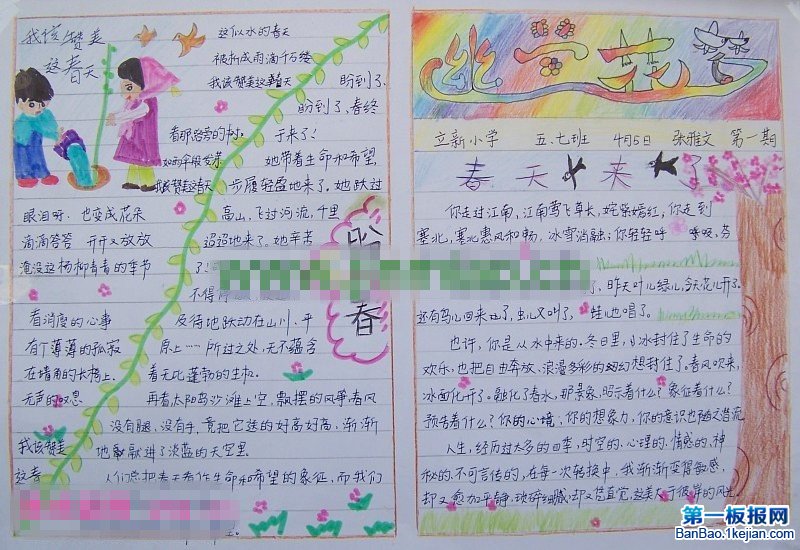 我该赞美
这春天
这似水的春天
被折成雨滴千万缕
我该赞美这春天
看那路旁的树,
我该赞美这春天
眼泪呀,也变成花朵
滴滴答答 开开又放放
淹没这杨柳青青的季节
看消度的心事
有个薄薄的孤寂
在墙角的长椅上
无声的叹息
我该赞美
这春
盼到了、
盼到了、春终
于来了!
她带着生命和希望,
步履轻盈地来了。她跃过
高山,飞过河流,千里
迢迢地来了。她辛苦
了
不得
及待地跃动在山川、平
原上……所过之处,无不蕴含
着无比蓬勃的生机。
再看太阳岛沙滩上空,飘摆的风筝春风
没有腿、没有手,竟把它送的好高好高,渐渐
地跃进了淡蓝的天空里
人们总把春天看作生命和希望的象征,而我们
盼春
幽百花苍
立新小学 五.七班 4月5日 张雅文 第一期
春天来了
你走过江南,江南莺飞草长,姹紫嫣红,你走到
塞北,塞北惠风和畅,冰雪消融;你轻轻呼 呼吸,芬
了、昨天叶儿绿儿,今天花儿开。
还有鸟儿回来了,虫儿又叫了, 蛙儿也唱了。
也许,你是从水中来的.冬日里,小冰封住了生命的
欢乐,也把自由奔放、浪漫多彩的幻想封住了。春风吹来,
冰面化开了。融化了春水,那景象,昭示着什么?象征着什么?
预告着什么?你的心境,你的想象力,你的意识也随之潜流
人生,经历过太多的四季,时空的、心理的、情感的、神
秘的、不可言传的,在每一次转换中,我渐渐变得敏感,
却又愈加平静,琐碎细腻,却又凭直觉,这美大于彼岸的风生
第一板报网
BanBao.1kejian.com